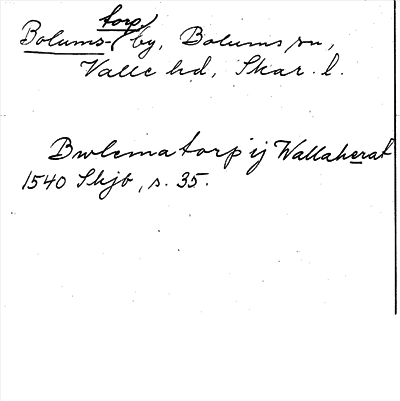 Bolums-(torp) by, Bolums sn,
Valle hd, Skar. l.
Bwlema torp ij Wallaherat
1540 Skjb, s. 35.